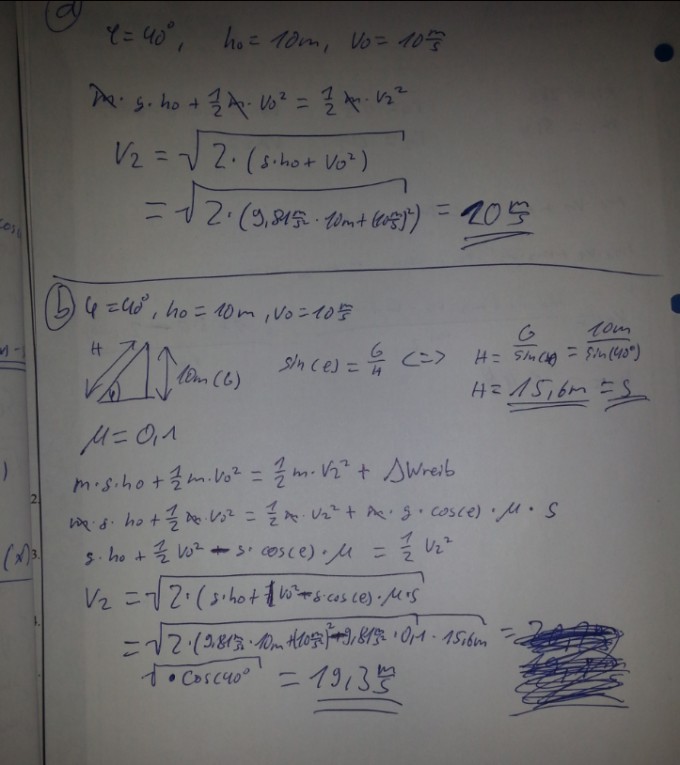 a
φ=40°, h₀=10m, v₀=10 m/s
m·g·h₀ + 1/2 m·v₀² = 1/2 m·v₂²
V₂ = √(2·(g·h₀ + v₀²))
= √(2·(9,81 m/s²·10m+(10 m/s)²)) = 20 m/s
b φ=40°, h₀=10m, v₀=10 m/s
H 10m(G) φ
sin(φ) = G/H <=> H = G/sin(φ) = 10m/sin(40°)
H = 15,6m = s
μ=0,1
m·g·h₀ + 1/2 m·v₀² = 1/2 m·v₂² + ΔWreib
m·g·h₀ + 1/2 m·v₀² = 1/2 m·v₂² + m·g·cos(φ)·μ·s
2.
g·h₀ + 1/2 v₀² - g·cos(φ)·μ = 1/2 v₂²
(x) 3.
V₂ = √(2·(g·h₀+ v₀² - g·cos(φ)·μ·s
= √(2·(9,81 m/s²·10m+(10 m/s)² - 9,81 m/s²·0,1·15,6m =
√ ·cos(40° = 19,3 m/s